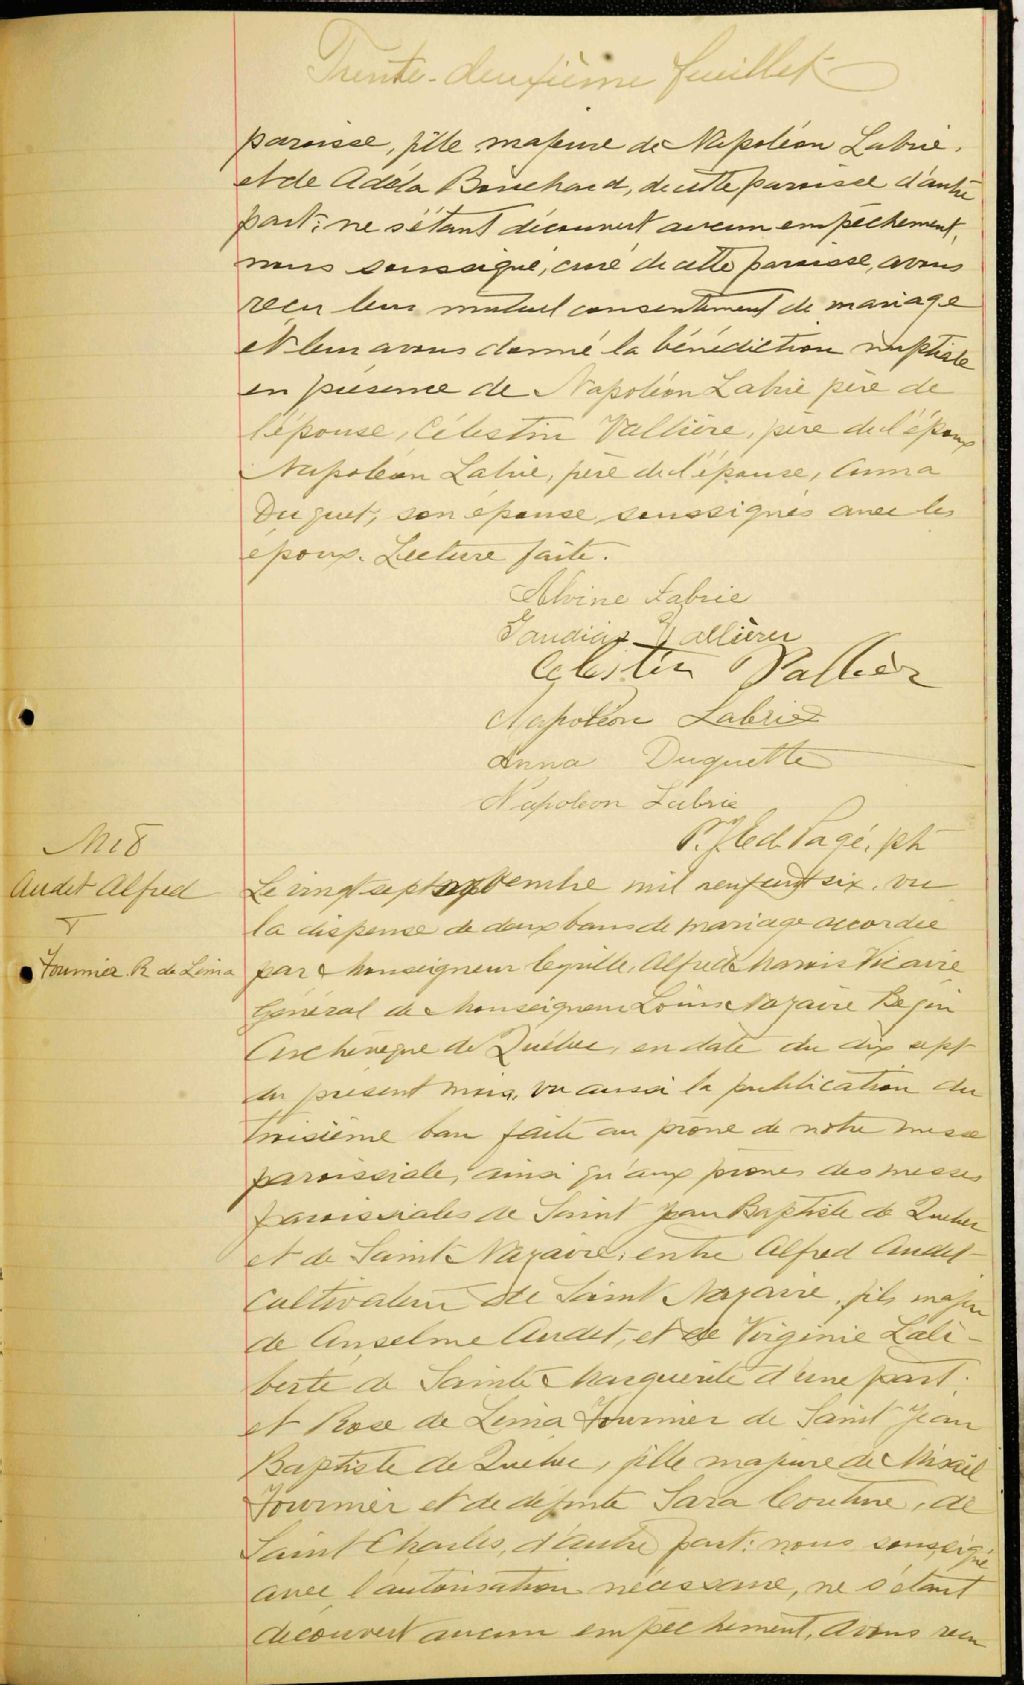 Trente-deuxième feuillet
paroisse, fille majeure de Napoléon Labrie,
et de Adéla Bouchard, de cette paroisse d'autre
part; ne s'étant découvert aucun empêchement,
nous soussigné, curé de cette paroisse, avons
reçu leur mutuel consentement de mariage
et leur avons donné la bénédiction nuptiale
en présence de Napoléon Labrie père de
l'épouse, Célestin Vallière, père de l'époux
Napoléon Labrie, père de l'épouse, Anna
Duguet, son épouse, soussignés avec les
époux. Lecture faite.
Alvine Labrie
Gaudias Vallières
Celestin Vallièr
Napoléon Labrie
Anna Duquette
Napoleon Labrie
Pagé, ptr
M18
Audet Alfred
&
Fournier R. de Lima
Le vingt sept novembre mil neuf cent six, vu
la dispense de deux bans de mariage accordée
par Monseigneur Cyrille, Alfred Marois Vicaire
Général de Monseigneur Louis Nazaire Bégin
Archevêque de Québec, en date du dix sept
du présent mois, vu aussi la publication du
troisième ban faite au prône de notre messe
paroissiale, ainsi qu'aux prônes des messes
paroissiales de Saint Jean Baptiste de Québec
et de Saint Nazaire, entre Alfred Audet
cultivateur de Saint Nazaire, fils majeur
de Anselme Audet, et de Virginie Lali-
berté de Sainte Marguerite d'une part;
et Rose de Lima Fournier de Saint Jean
Baptiste de Québec, fille majeure de Misaël
Fournier et de défunte Sara Couture, de
Saint Charles, d'autre part: nous soussigné
avec l'autorisation nécessaire, ne s'étant
découvert aucun empêchement, avons reçu